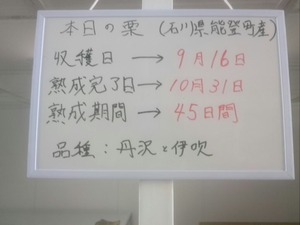 本日の栗 (石川県能登町産)
収穫日 → 9月16日
熟成完了日→10月31日
熟成期間 → 45日間
品種：丹沢と伊吹